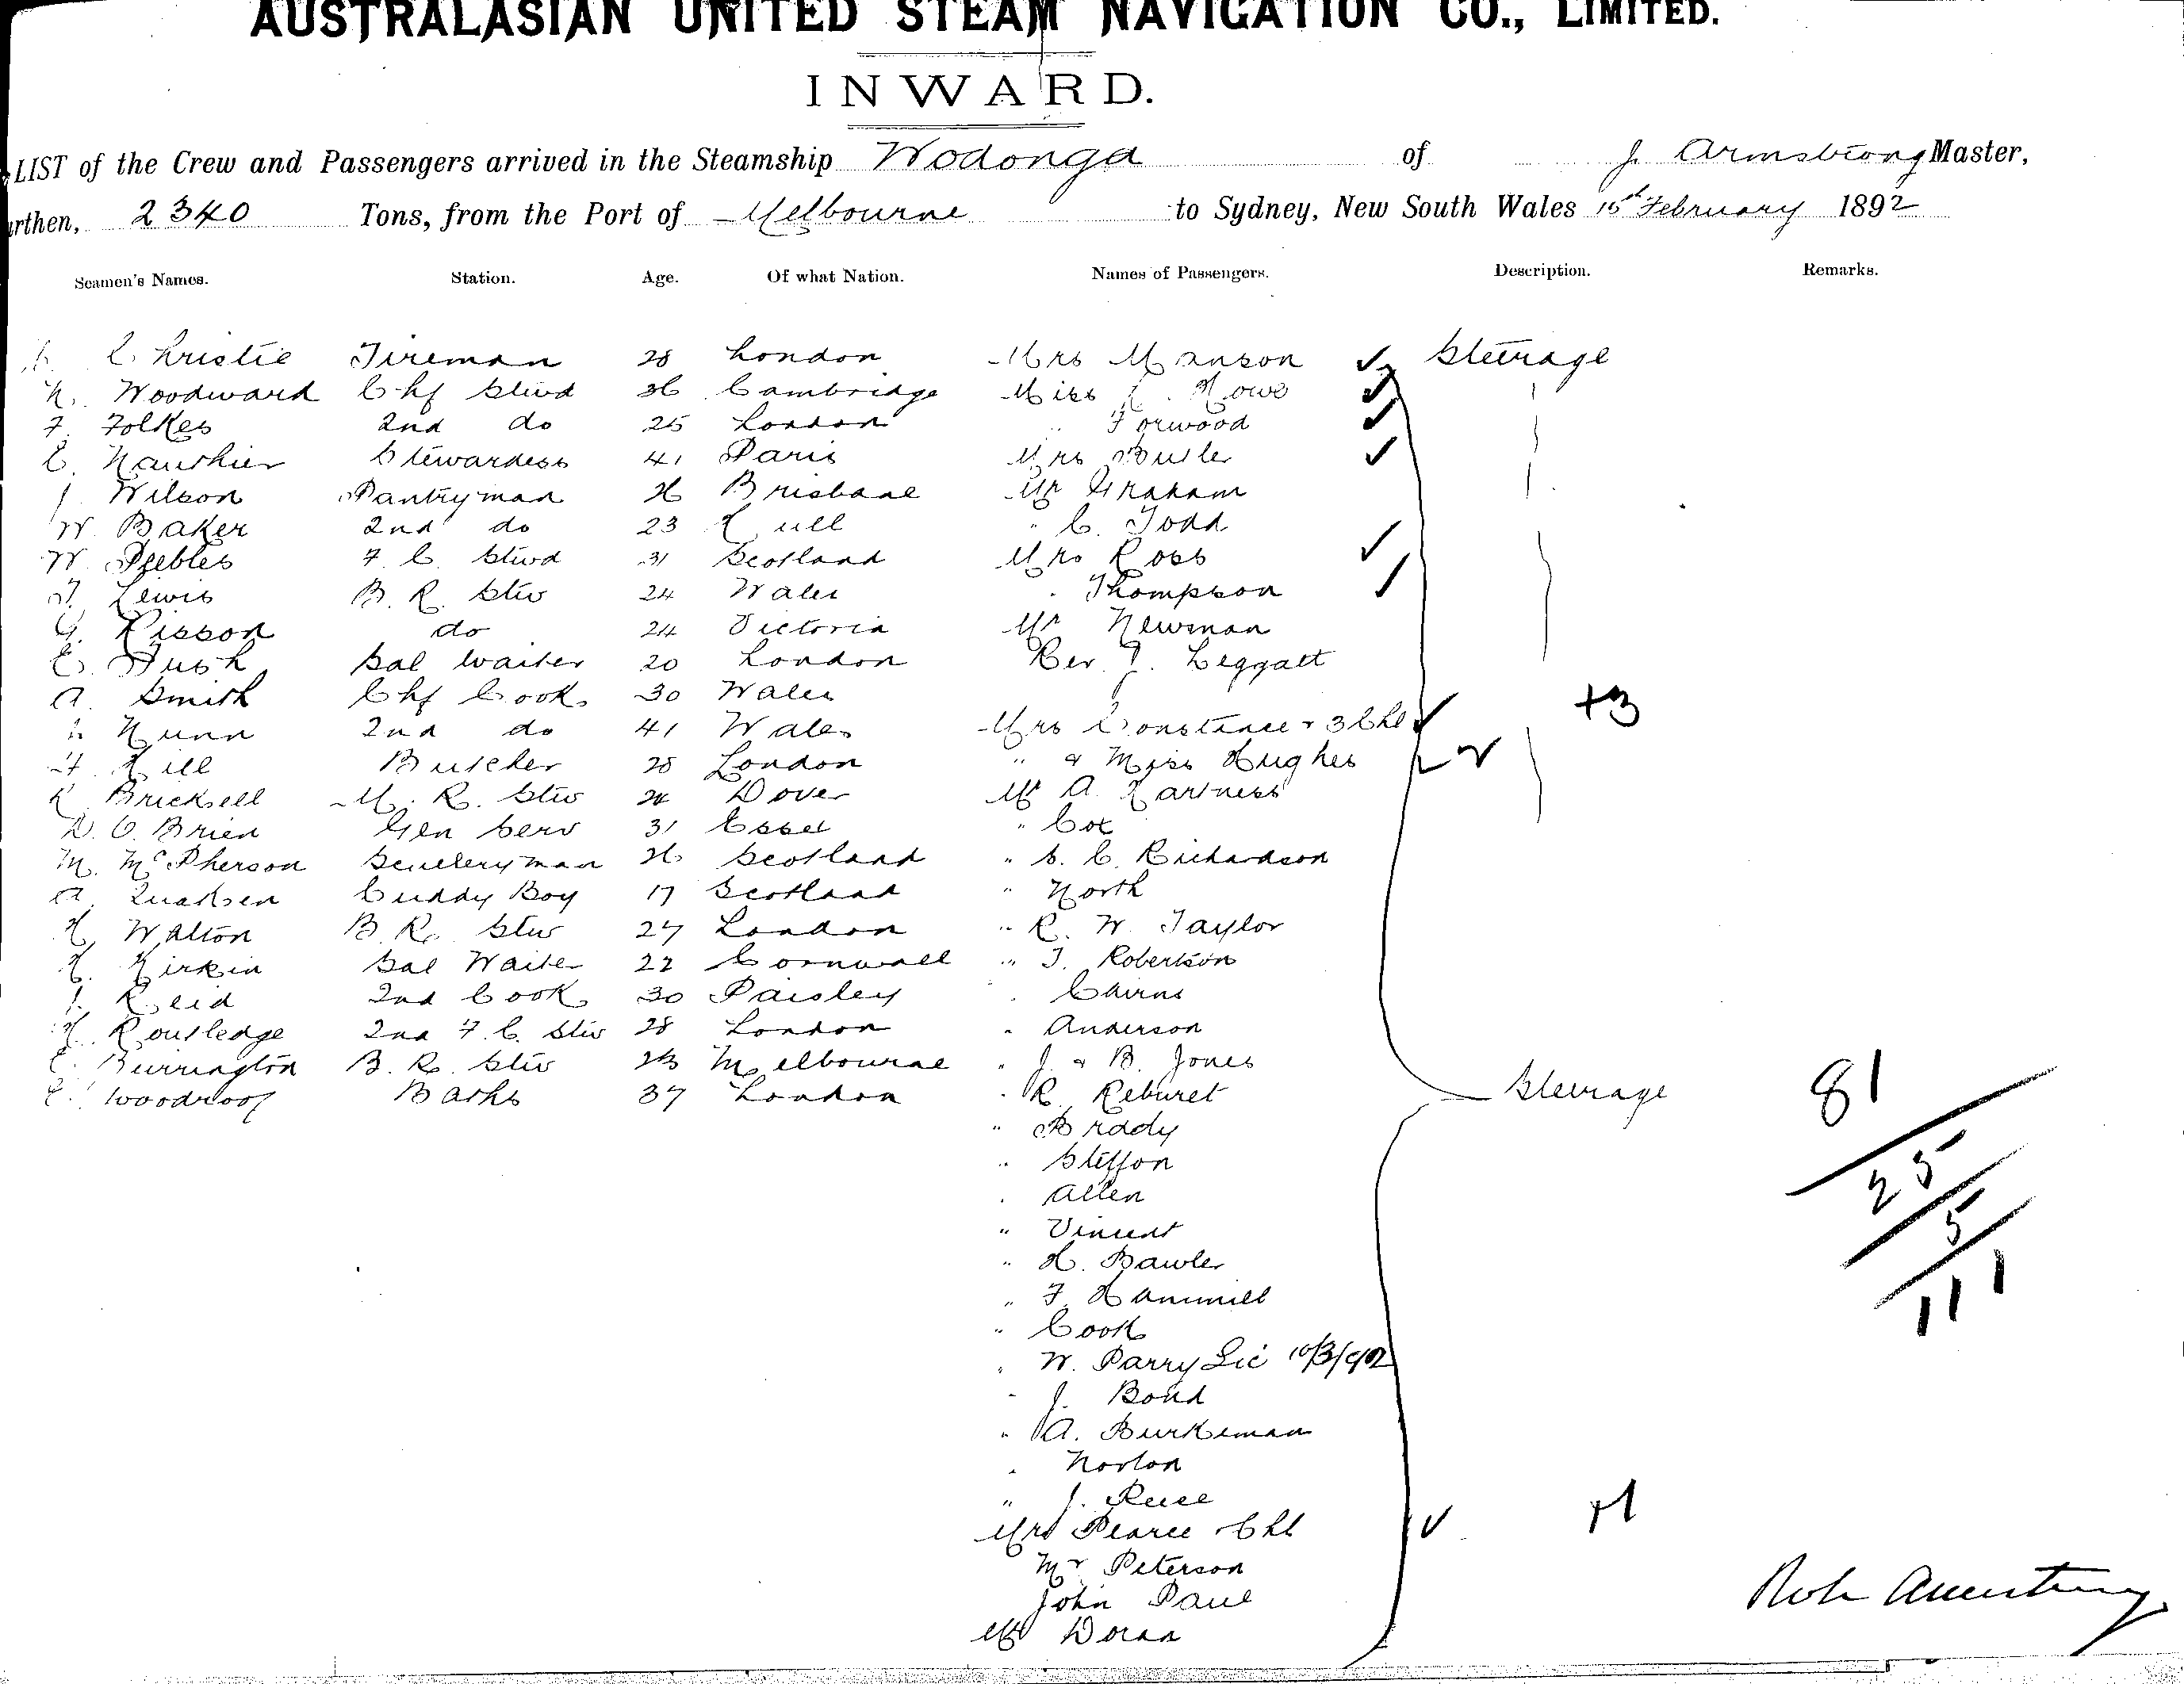 AUSTRALASIAN UNITED STEAM NAVIGATION CO., LIMITED.
INWARD.
LIST of the Crew and Passengers arrived in the Steamship Wodonga of J. Armstrong Master,
rthen, 2340 Tons, from the Port of Melbourne to Sydney, New South Wales 15th February 1892
Seamen's Names. Station. Age. Of what Nation. Names of Passengers. Description. Remarks.
Christie Fireman 28 London Mrs Manson ✓ Steerage
Woodward Chf Stwd 36 Cambridge Miss Howe ✓
F. Folkes 2nd do 25 London " Forwood ✓
E. Stewardess 41 Paris Mrs Butler ✓
J. Wilson Pantryman 26 Brisbane Mr Graham
W. Baker 2nd do 23 Hull " C. Todd
W. Peebles F. C. Stwd 31 Scotland Mrs Ross ✓
T. Lewis B. R. Stw 24 Wales " Thompson ✓
G. Risson do 24 Victoria Mr Newman
E. Sal Waiter 20 London Rev. J. Leggatt
A. Smith Chf Cook 30 Wales
Nunn 2nd do 41 Wales Mrs Constance + 3 Chl ✓ +3
Hill Butcher 28 London " & Miss Hughes 2
Bricksell M. R. Stw 24 Dover Mr A. Hartness
D. O. Brien Gen Serv 31 Essex " Cox
M. McPherson Sculleryman 26 Scotland " S. C. Richardson
A. Cuddy Boy 17 Scotland " North
H. Walton B. R. Stw 27 London " R. W. Taylor
H. Kirkin Sal Waiter 22 Cornwall " J. Robertson
J. Reid 2nd Cook 30 Paisley " Cairns
H. Routledge 2nd F. C. Stw 28 London " Anderson
Burrington B. R. Stw 23 Melbourne " J. & B. Jones
E. Woodroof Barks 37 London " R. Reburet Steerage 81
" Brady
" Steffon 25
" Allen
" Vincent 5
" H. Bawler
" F. Hammill 111
" Cook
" W. Parry Lic 10/3/92
" J. Bond
" A. Burkeman
" Norton
" J. Reese
Mrs Pearce Chl ✓ +1
Mr Peterson
John Paul
Mr Doran